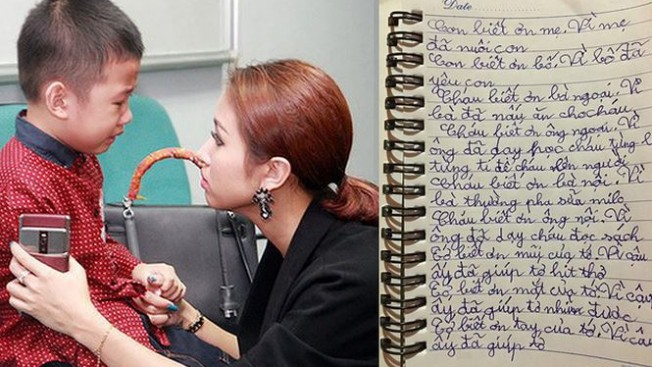 Date
Con biết ơn mẹ, Vì mẹ
đã nuôi con
Con biết ơn bố, Vì bố đã
yêu con
Cháu biết ơn bà ngoại, Vì
bà đã nấu ăn cho cháu
Cháu biết ơn ông ngoại, Vì
ông đã dạy học cháu từng l
từng tí để cháu nên người
Cháu biết ơn bà nội, Vì
bà thường pha sữa milo
Cháu biết ơn ông nội, Vì
ông đã dạy cháu đọc sách
Tớ biết ơn mũi của tớ, Vì cậu
ấy đã giúp tớ hít thở
Tớ biết ơn mắt của tớ, Vì cậu
ấy đã giúp tớ nhìn được
Tớ biết ơn tay của tớ, Vì câ
ấy đã giúp tớ